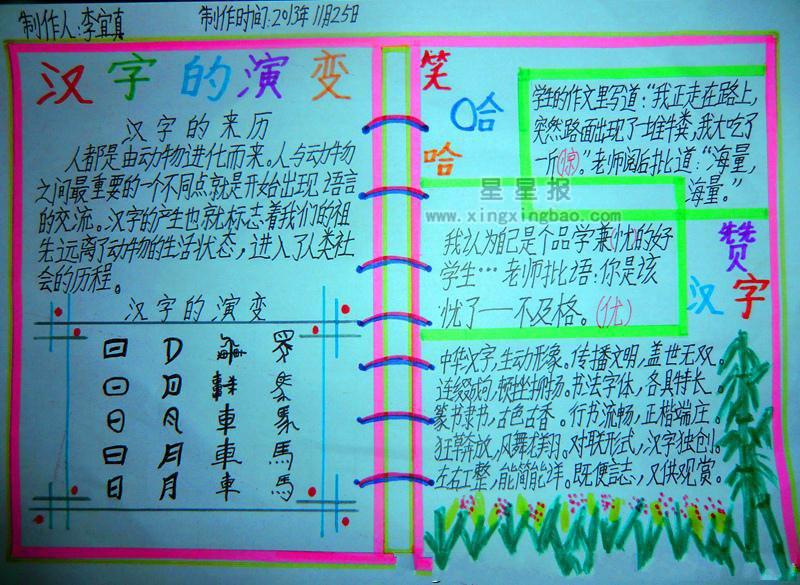 制作人:李宜真 制作时间:2013年11月25日
汉字的演变
汉字的来历
人都是由动物进化而来。人与动物
之间最重要的一个不同点就是开始出现语言
的交流。汉字的产生也就标志着我们的祖
先远离了动物的生活状态,进入了人类社
会的历程。
汉字的演变
日 月 車 馬
日 月 車 馬
日 月 車 馬
日 月 車 馬
日 月 车 馬
笑
哈
哈
学生的作文里写道:“我正走在路上,
突然路面出现了一堆牛粪,我大吃了
一斤(惊)。”老师阅后批道:“海量,
海量。”
星星报
www.xingxingbao.com
我认为自己是个品学兼忧的好
学生…老师批语:你是该
忧了——不及格。(优)
赞
汉字
中华汉字,生动形象。传播文明,盖世无双。
连缀成句,顿挫抑扬。书法字体,各具特长。
篆书隶书,古色古香。行书流畅,正楷端庄。
狂草奔放,凤舞龙翔。对联形式,汉字独创。
左右工整,能简能详。既便言志,又供观赏。